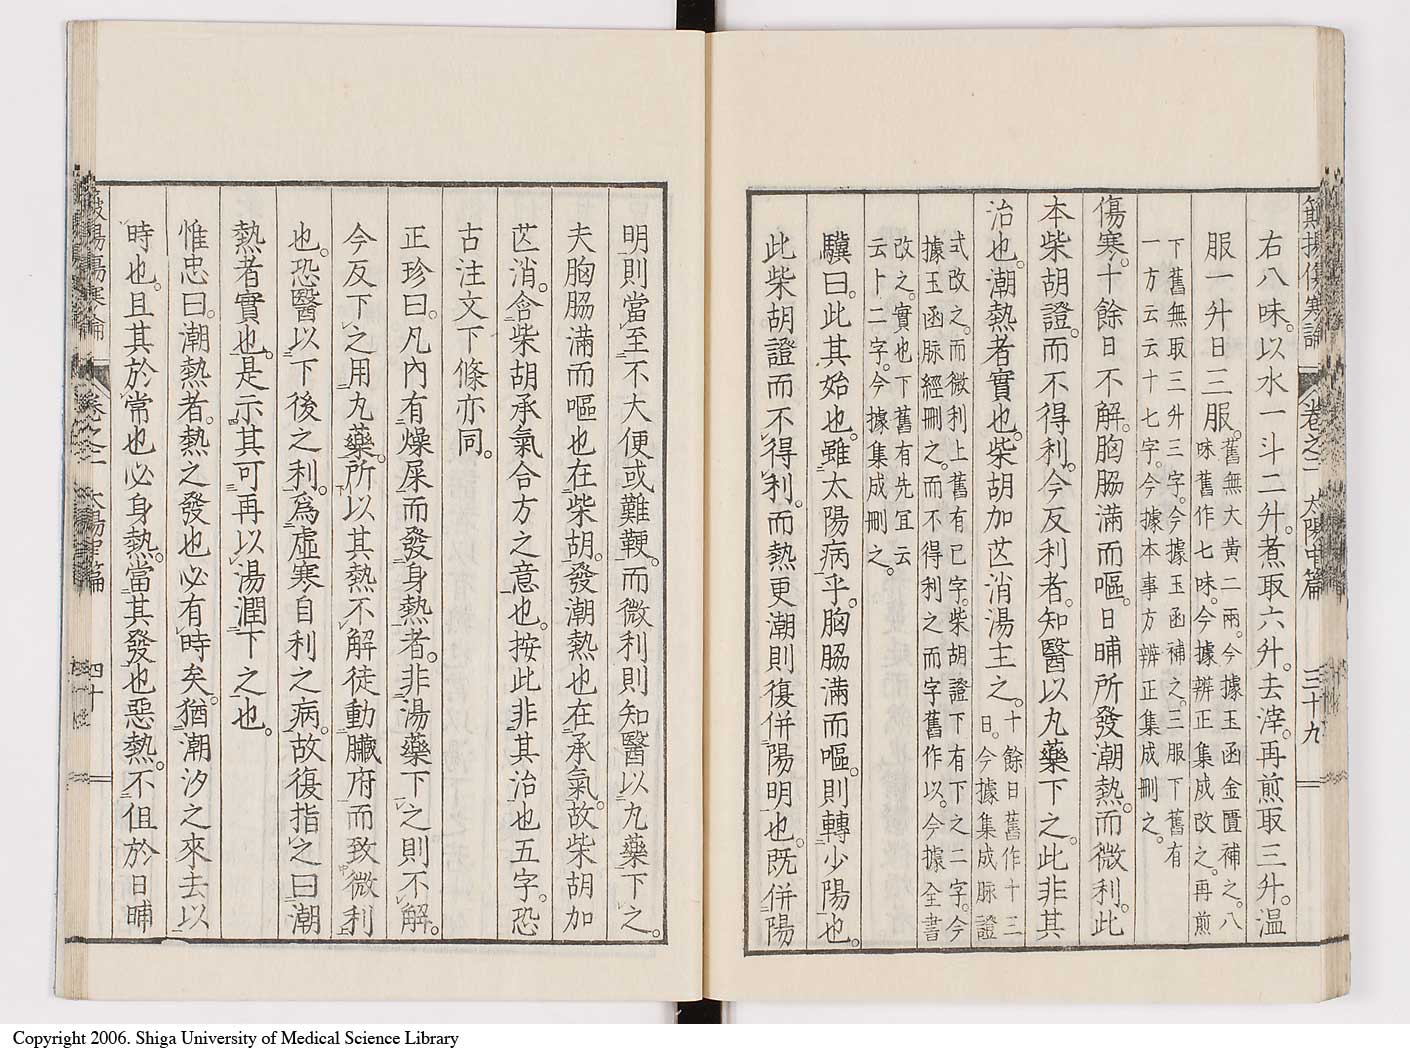 簸揚傷寒論 卷之二 太陽中篇 三十九
右八味。以水一斗二升。煮取六升。去滓。再煎取三升。温
服一升日三服。舊無大黃二兩。今據玉函金匱補之。八
味舊作七味。今據辨正集成改之。再煎
下舊無取三升三字。今據玉函補之。三服下舊有
一方云云十七字。今據本事方辨正集成刪之。
傷寒。十餘日不解。胸脇滿而嘔。日晡所發潮熱。而微利。此
本柴胡證。而不得利。今反利者。知醫以丸藥下之。此非其
治也。潮熱者實也。柴胡加芒消湯主之。十餘日舊作十三
日。今據集成脉證
式改之。而微利上舊有已字。柴胡證下有下之二字。今
據玉函脉經刪之。而不得利之而字舊作以。今據全書
改之。實也下舊有先宜云
云卜二字。今據集成刪之。
驥曰。此其始也。雖太陽病乎。胸脇滿而嘔。則轉少陽也。
此柴胡證而不得利。而熱更潮則復併陽明也。既併陽
明則當至不大便或難鞕。而微利則知醫以丸藥下之。
夫胸脇滿而嘔也在柴胡。發潮熱也在承氣。故柴胡加
芒消。含柴胡承氣合方之意也。按此非其治也五字。恐
古注文下條亦同。
正珍曰。凡內有燥屎而發身熱者。非湯藥下之則不解。
今反下之用丸藥。所以其熱不解徒動臟府而致微利
也。恐醫以下後之利。爲虛寒自利之病。故復指之曰潮
熱者實也。是示其可再以湯潤下之也。
惟忠曰。潮熱者。熱之發也必有時矣。猶潮汐之來去以
時也。且其於常也必身熱。當其發也惡熱。不但於日晡
簸揚傷寒論 卷之二 太陽中篇 四十
Copyright 2006. Shiga University of Medical Science Library